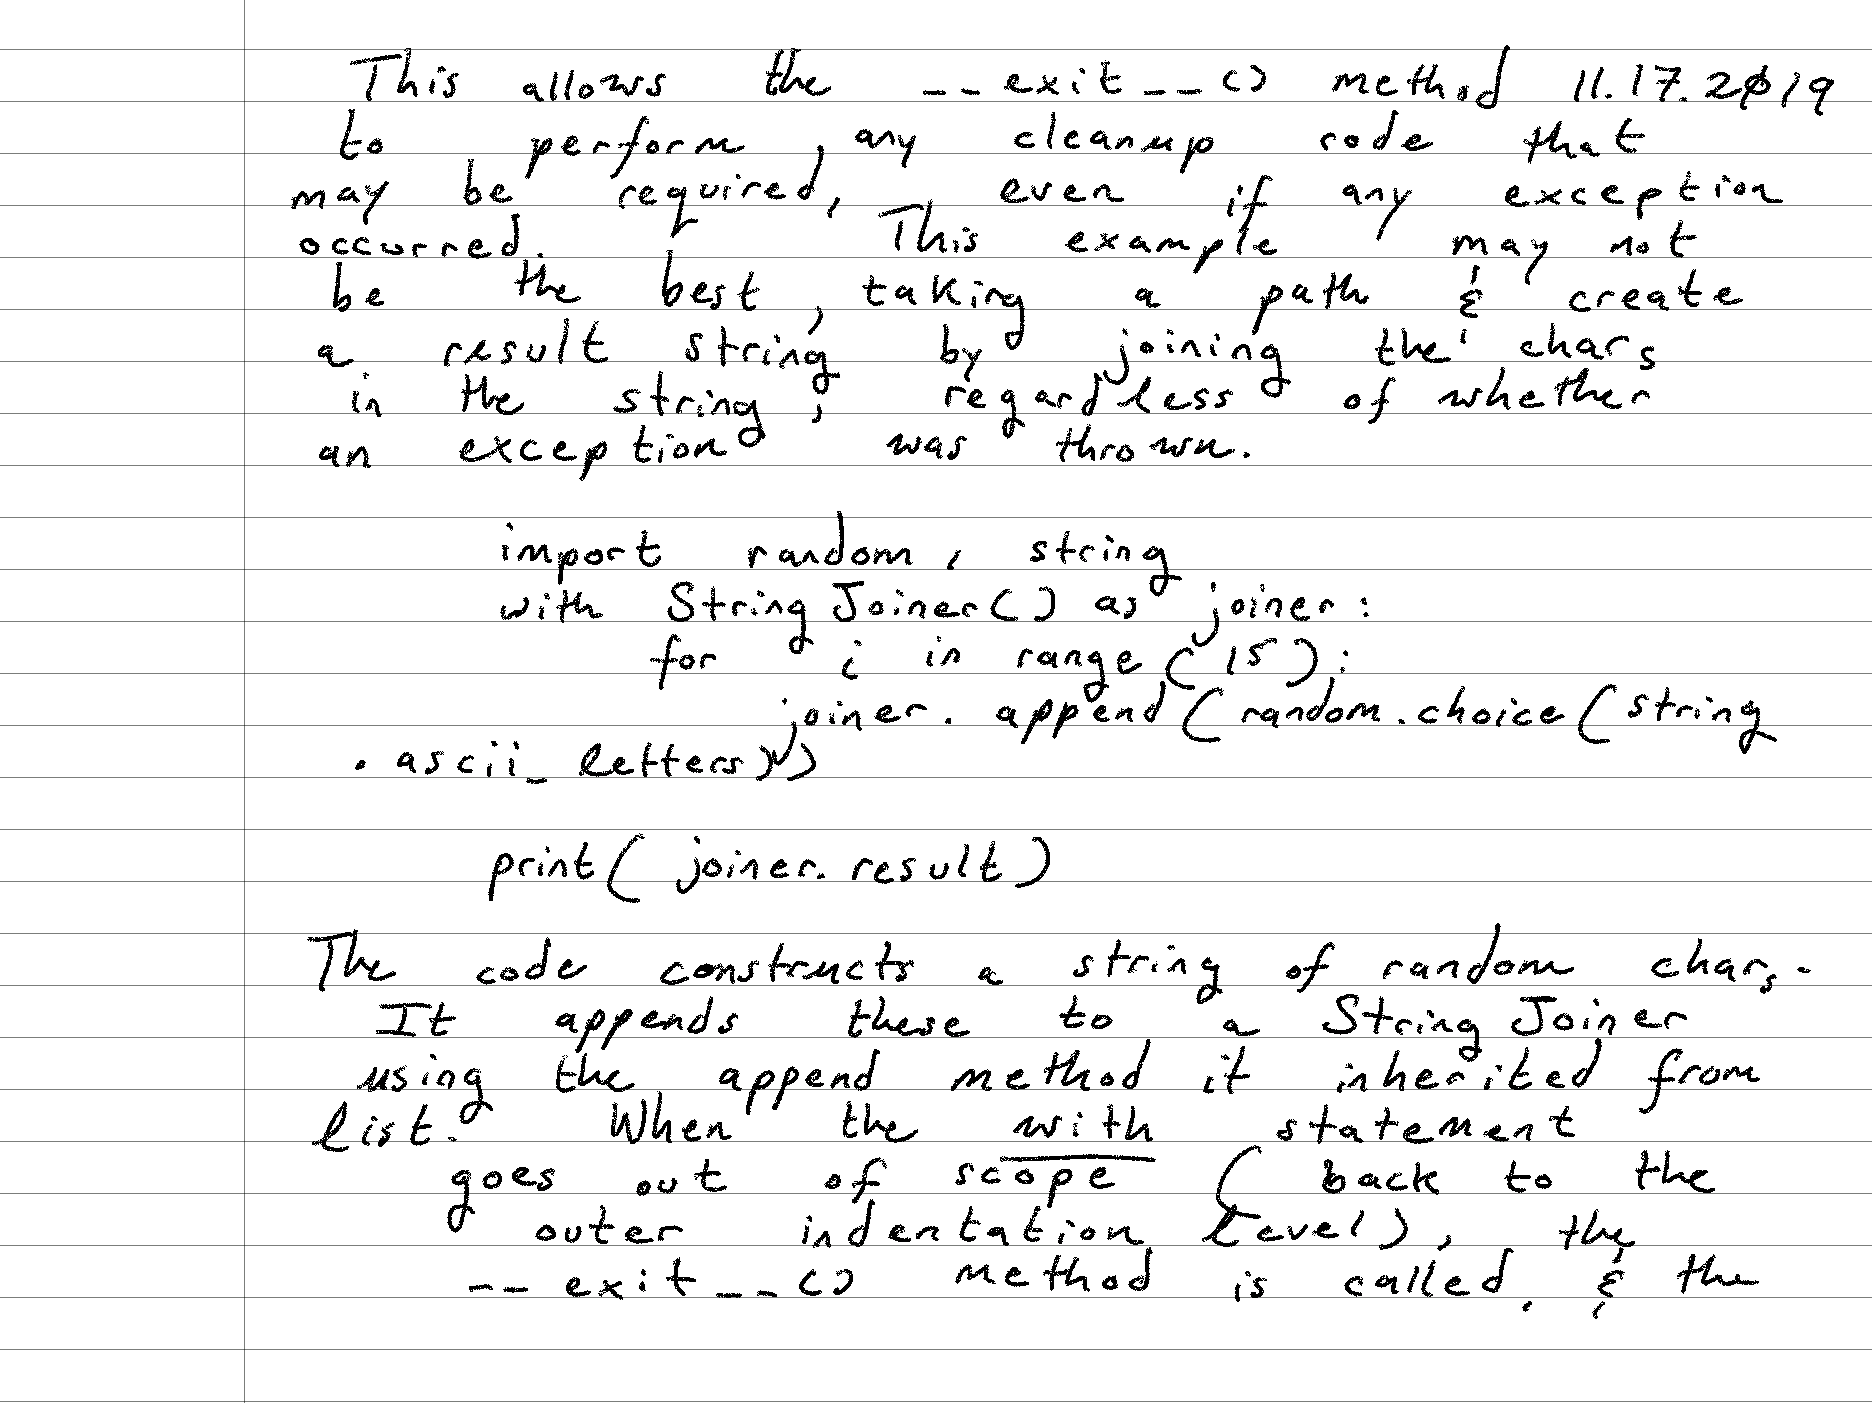 This allows the __exit__() method 11.17.2019
to perform any cleanup code that
may be required, even if any exception
occurred. This example may not
be the best, taking a path & create
a result string by joining the chars
in the string, regardless of whether
an exception was thrown.
import random, string
with StringJoiner() as joiner:
for i in range(15):
joiner.append(random.choice(string
.ascii_letters))
print(joiner.result)
The code constructs a string of random chars.
It appends these to a StringJoiner
using the append method it inherited from
list. When the with statement
goes out of scope (back to the
outer indentation level), the
__exit__() method is called, & the